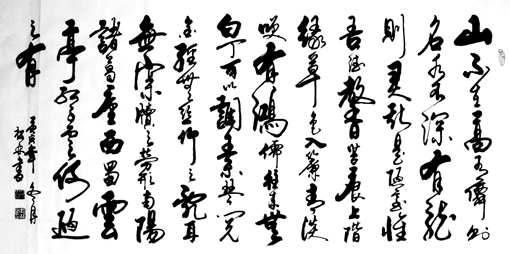 山不在高有僊則
名水不深有龍
則靈斯是陋室惟
吾德馨苔痕上階
綠草色入簾青談
笑有鴻儒往來無
白丁可以調素琴閱
金經無絲竹之亂耳
無案牘之勞形南陽
諸葛廬西蜀雲
亭孔子云何陋
之有
年冬月
書